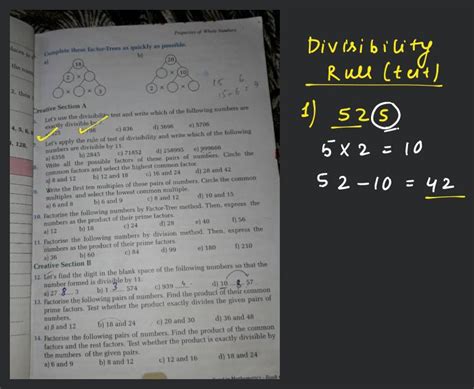 Properties of Whole Numbers
Complete these factor-Trees as quickly as possible.
a)
b)
18
20
2 ×
× 10
× 3
×
15 6
Creative Section A
Let's use the divisibility test and write which of the following numbers are
exactly divisible by
c) 836 d) 3696 e) 5706
Let's apply the rule of test of divisibility and write which of the following
numbers are divisible by 11.
a) 6358 b) 2845 c) 71852 d) 258995 e) 999666
Write all the possible factors of these pairs of numbers. Circle the
common factors and select the highest common factor.
a) 8 and 12 b) 12 and 18 c) 16 and 24 d) 28 and 42
9. Write the first ten multiples of these pairs of numbers. Circle the common
multiples, and select the lowest common multiple.
a) 6 and 8 b) 6 and 9 c) 8 and 12 d) 10 and 15
10. Factorise the following numbers by Factor-Tree method. Then, express the
numbers as the product of their prime factors.
a) 12 b) 18 c) 24 d) 28 e) 40 f) 56
11. Factorise the following numbers by division method. Then, express the
numbers as the product of their prime factors.
a) 36 b) 60 c) 84 d) 99 e) 180 f) 230
Creative Section B
12. Let's find the digit in the blank space of the following numbers so that the
number formed is divisible by 11.
a) 27 8 3 b) 1 3 574 c) 939 4 d) 10 8 57
13. Factorise the following pairs of numbers. Find the product of their common
prime factors. Test whether the product exactly divides the given pairs of
numbers.
a) 8 and 12 b) 18 and 24 c) 20 and 30 d) 36 and 48
14. Factorise the following pairs of numbers. Find the product of the common
factors and the rest factors. Test whether the product is exactly divisible by
the numbers of the given pairs.
a) 6 and 9 b) 8 and 12 c) 12 and 16 d) 18 and 24
Divisibility
Rule (test)
1) 525
5 × 2 = 10
52 - 10 = 42